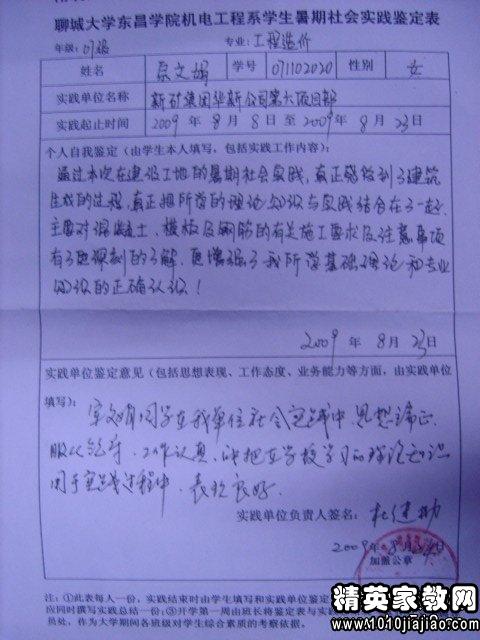 聊城大学东昌学院机电工程系学生暑期社会实践鉴定表
年级: 07级 专业: 工程造价
姓名 学号 071102020 性别 女
实践单位名称 新矿集团华新公司第六项目部
实践起止时间 2009 年 8 月 8 日 至 2009 年 8 月 23 日
个人自我鉴定（由学生本人填写，包括实践工作内容）:
通过本次在建设工地的暑期社会实践，真正感受到了建筑
生成的过程，真正把所学的理论知识与实践结合在了一起，
主要对混凝土、模板及钢筋的有关施工要求及注意事项
有了更深刻的了解，更增强了我所学基础理论和专业
知识的正确认识！
2009 年 8 月 23 日
实践单位鉴定意见（包括思想表现、工作态度、业务能力等方面，由实践单位
填写）:
同学在我单位社会实践中，思想端正
服从领导，工作认真，能把在学校学习的理论知识
用于实践过程中，表现良好。
实践单位负责人签名:
2009年 8月 日
加盖公章
注: ①此表每人一份，实践结束时由学生填写和实践单位鉴定
应同时撰写实践总结一份；③开学第一周由班长将鉴定表与实践
员处，作为大学期间各班级对学生综合素质的考察依据。
精英家教网
www.1010jiajiao.com